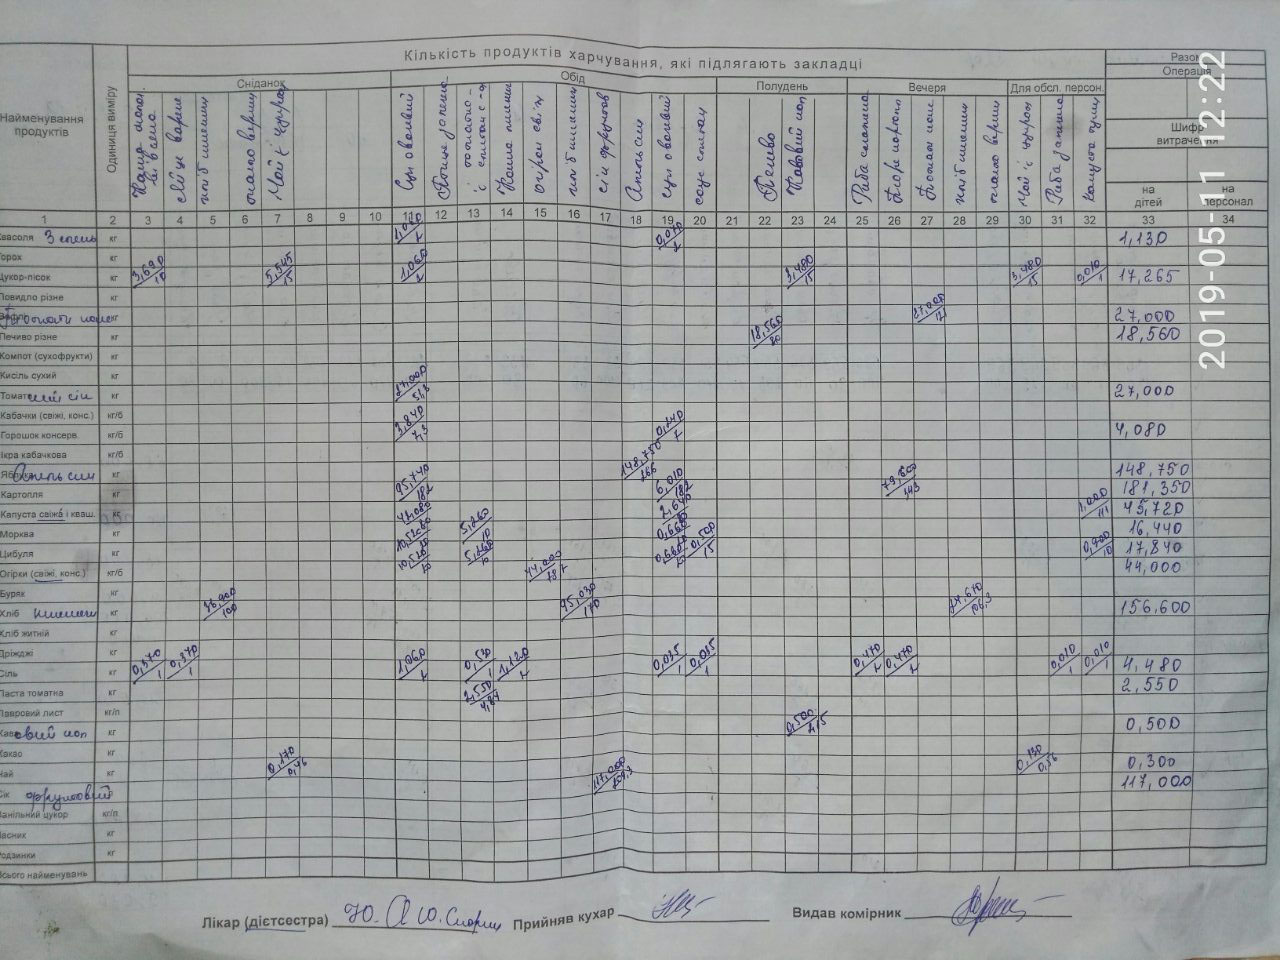 Кількість продуктів харчування, які підлягають закладці
Разом
Операція
Сніданок
Обід
Полудень
Вечеря
Для обсл. персон.
Найменування продуктів
Одиниця виміру
Яйце варене
хліб пшенич
масло верш
Чай з цукром
Суп овочевий
Каша пшенич
огірок свіж
хліб пшенич
сік фруктов
Апельсин
суп овочевий
Печиво
Кавовий нап
хліб пшенич
масло верш
чай з цукром
Риба запечена
Капуста туш
Шифр витрачення
на дітей
на персонал
1 2 3 4 5 6 7 8 9 10 11 12 13 14 15 16 17 18 19 20 21 22 23 24 25 26 27 28 29 30 31 32 33 34
Квасоля кг 1,060/2 0,070/2 1,130
Горох кг
Цукор-пісок кг 3,690/10 5,545/15 1,060/2 3,480/15 3,480/15 0,010/1 17,265
Повидло різне кг
кг 27,000 27,000
Печиво різне кг 18,560/80 18,560
Компот (сухофрукти) кг
Кисіль сухий кг
Томатний сік кг 27,000/51,3 27,000
Кабачки (свіжі, конс.) кг/б
Горошок консерв. кг/б 3,840/7,3 0,240/7 4,080
Ікра кабачкова кг/б
Апельсин кг 148,750/266 148,750
Картопля кг 95,740/182 6,010/182 79,600/143 181,350
Капуста свіжа і кваш. кг 42,080 2,640 1,000/111 45,720
Морква кг 10,520 5,260/10 0,660 16,440
Цибуля кг 10,520/20 5,260/10 0,660 0,500/15 0,900/10 17,840
Огірки (свіжі, конс.) кг/б 44,000 44,000
Буряк кг
Хліб пшенич кг 36,900/100 95,030/170 24,670/106,3 156,600
Хліб житній кг
Дріжджі кг
Сіль кг 0,370/1 0,370/1 1,060/2 0,530/1 1,120/2 0,035/1 0,035/1 0,470/2 0,470/2 0,010/1 0,010/1 4,480
Паста томатна кг 2,550/4,84 2,550
Лавровий лист кг/п
Кавовий нап кг 0,500/2,15 0,500
Какао кг
Чай кг 0,170/0,46 0,130/0,56 0,300
Сік фруктовий кг 117,000/209,3 117,000
Ванільний цукор кг/п
Часник кг
Родзинки кг
Всього найменувань
Лікар (дієтсестра) Прийняв кухар Видав комірник
2019-05-11 12:22